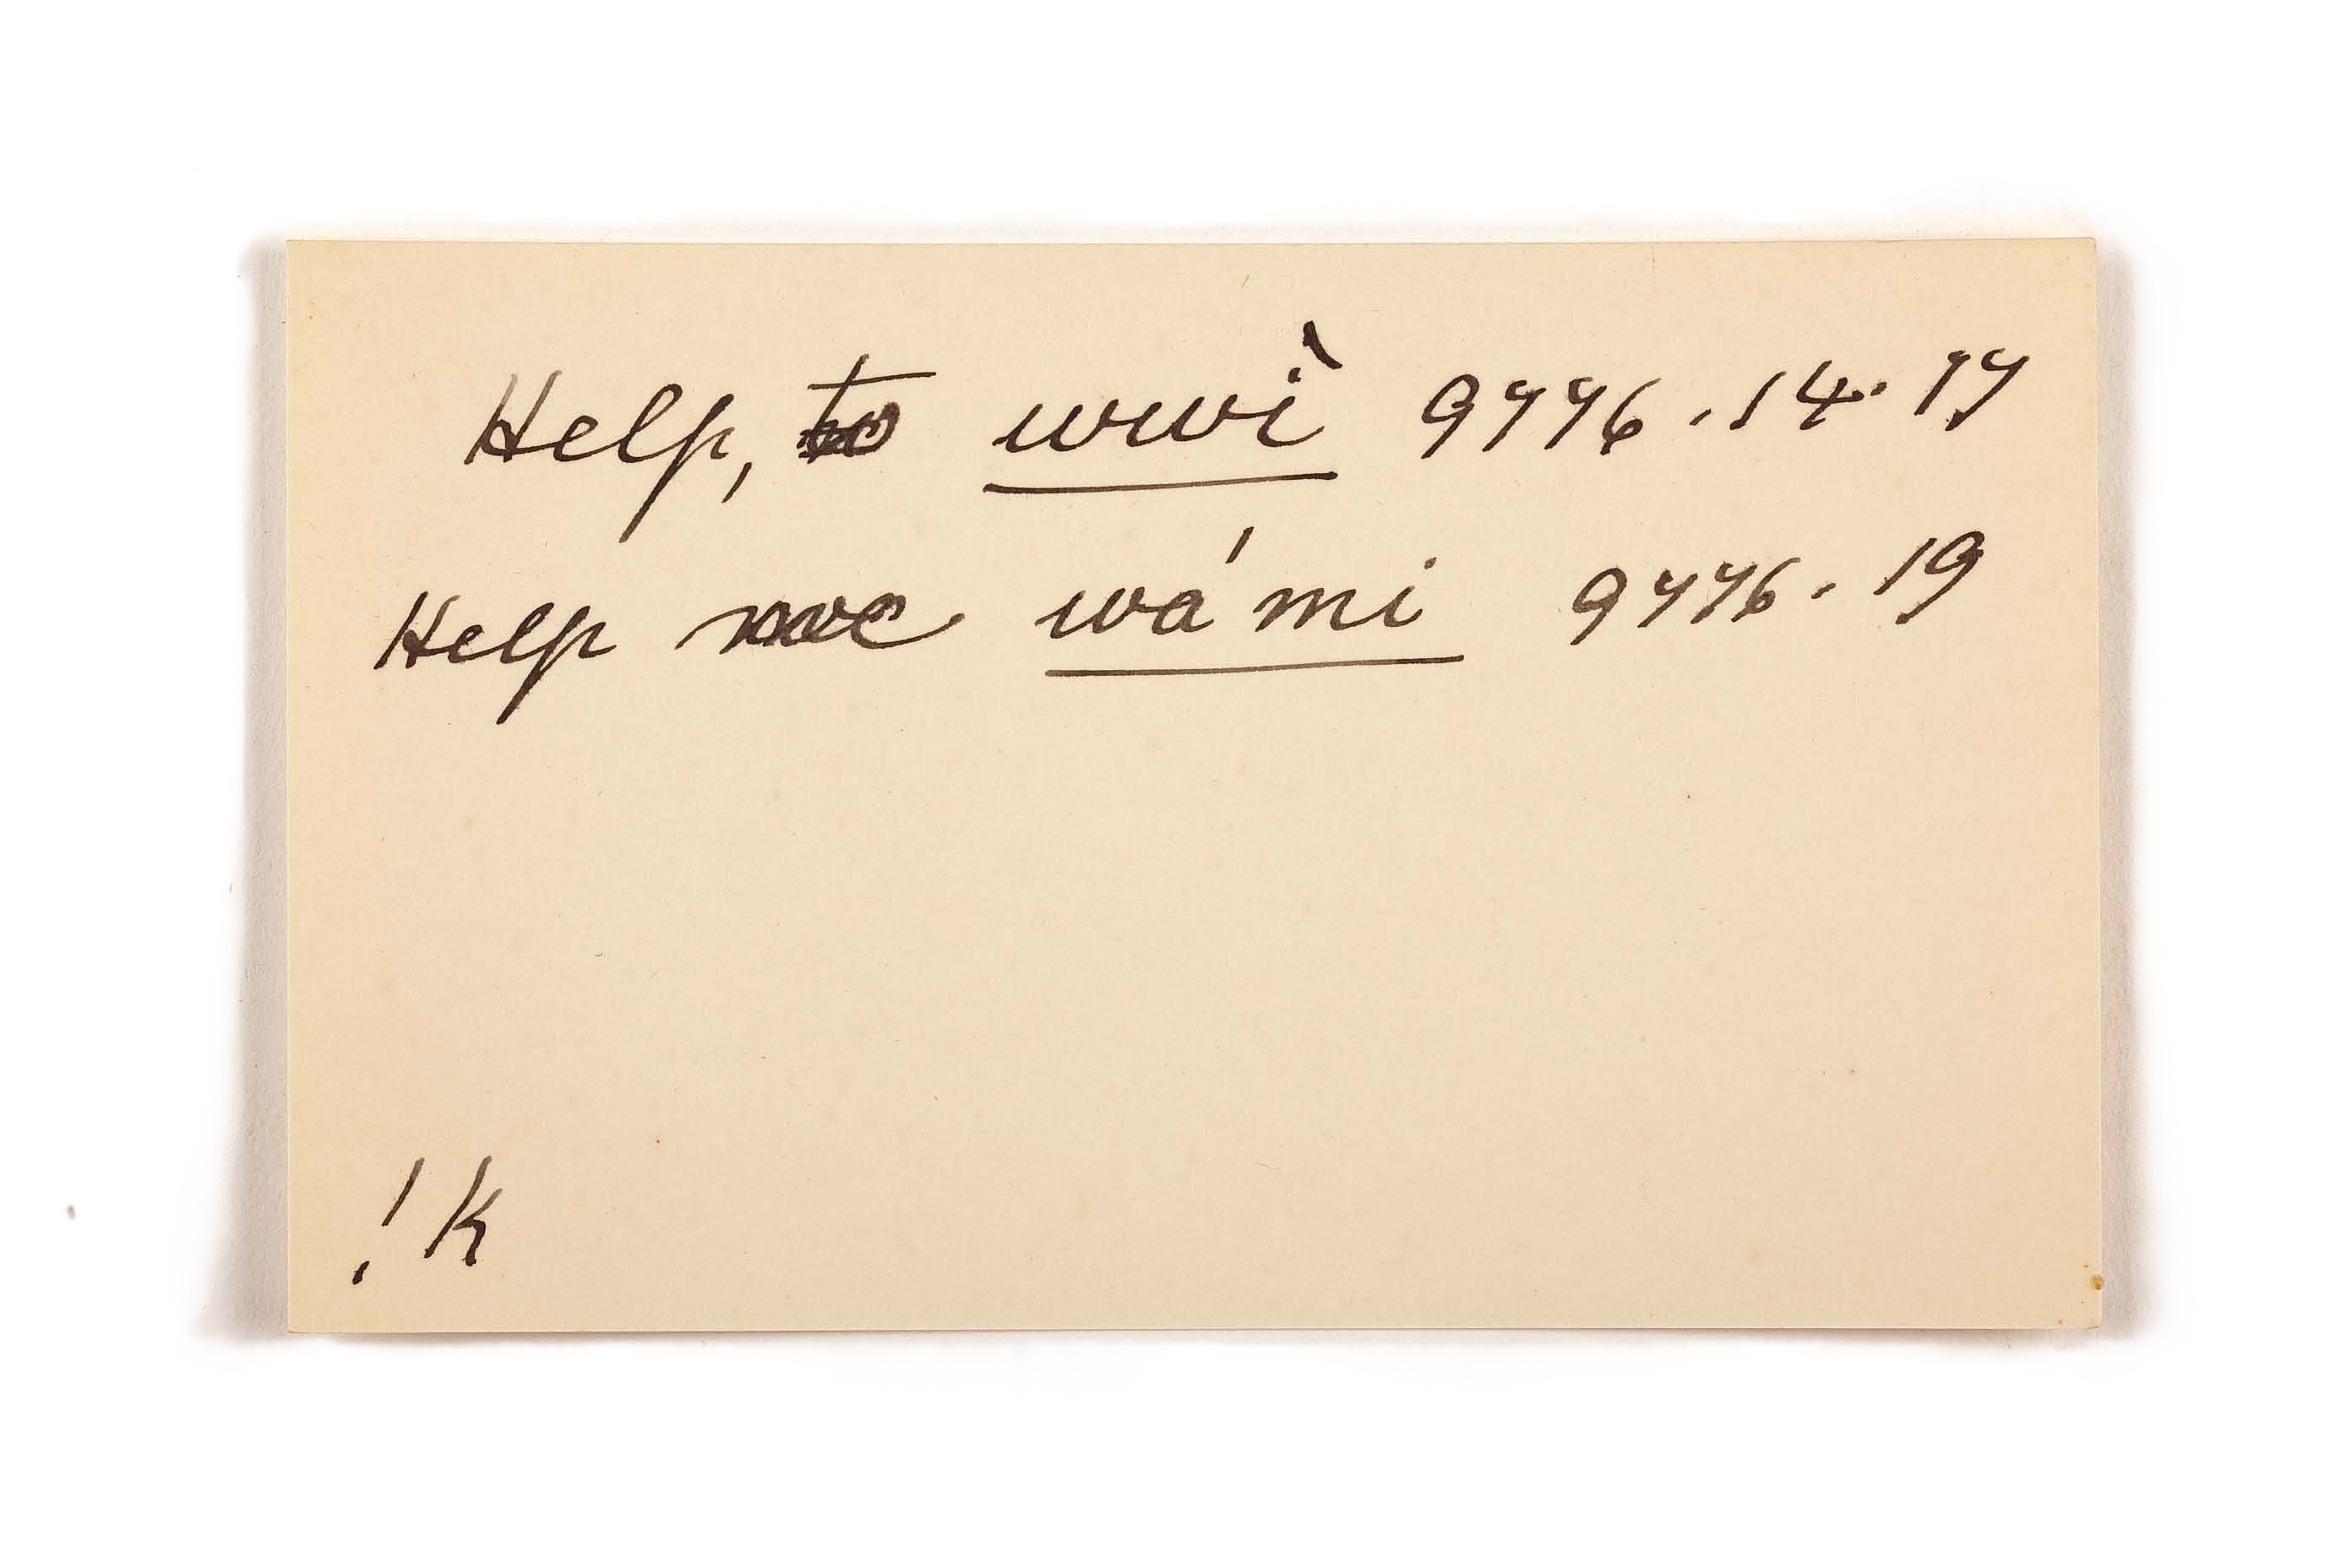 Help, to wwì 9776.14.17
Help me wá mi 9776.19
!K